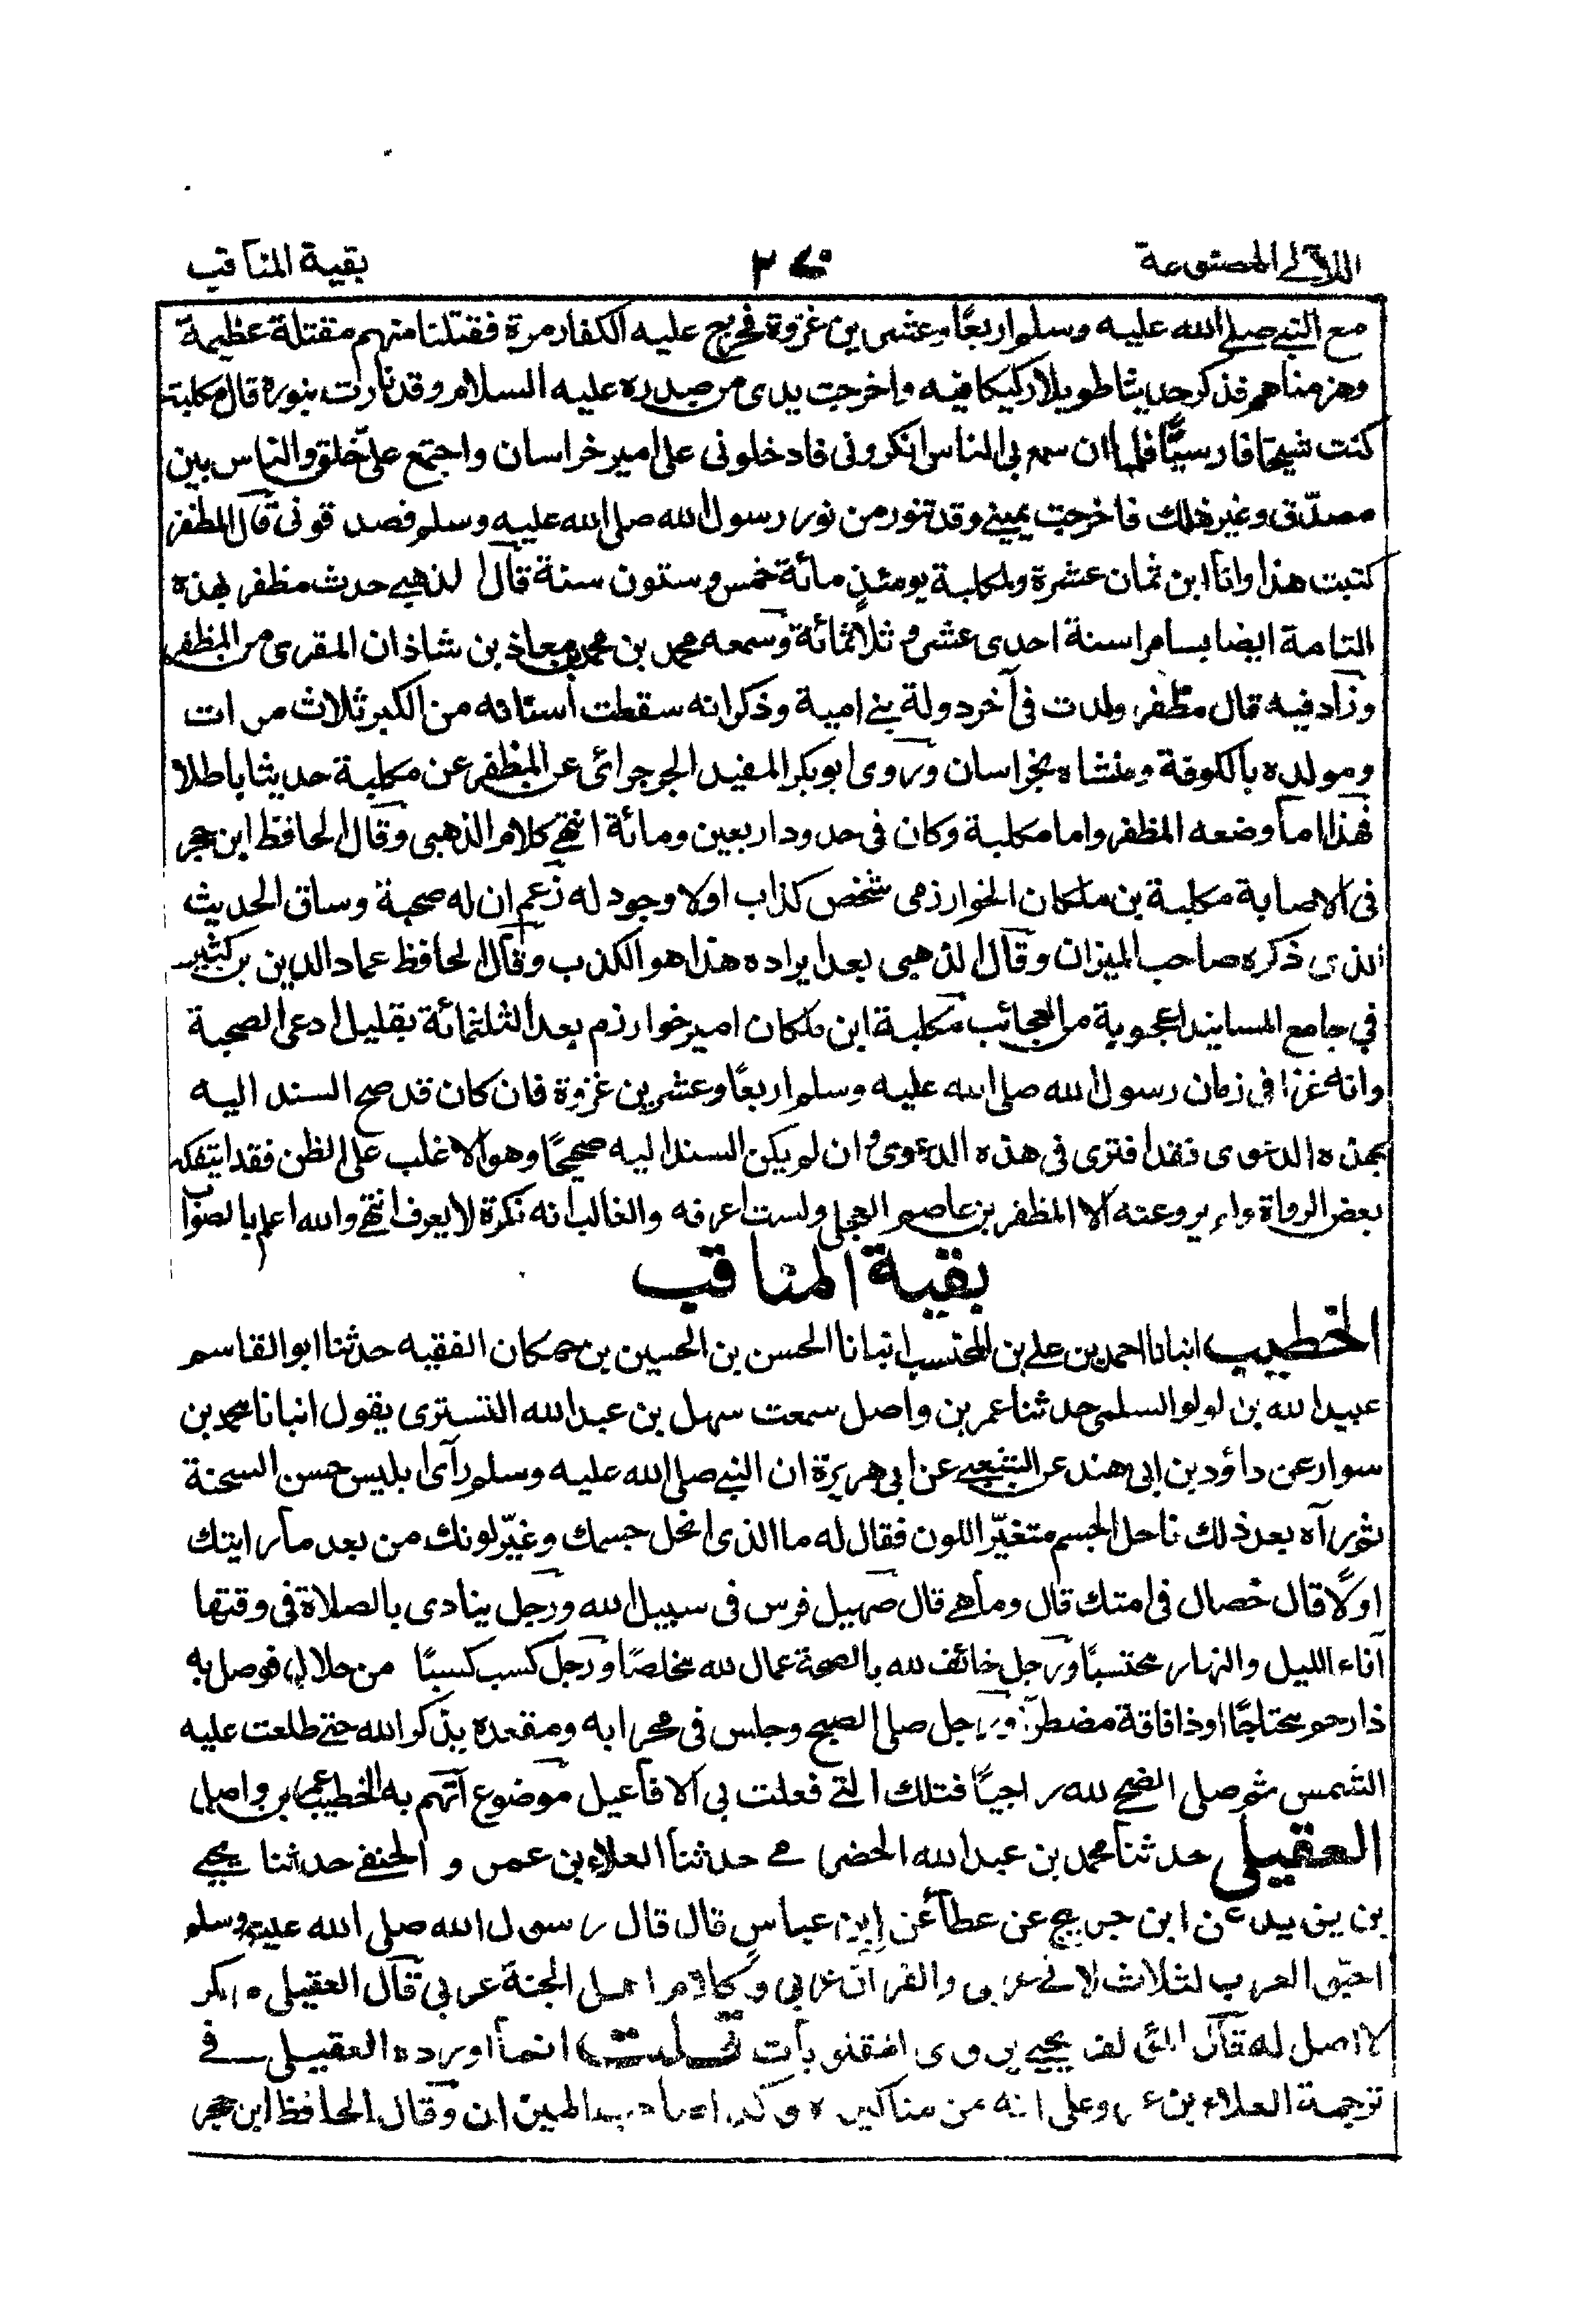 اللآلى المصنوعة
بقية المناقب
مع النبي صلى الله عليه وسلم اربعًا وعشرين غزوة فخرج علينا الكفار مرة فقتلنا منهم مقتلة عظيمة
وهزمناهم فذكر حديثا طويلا ركيكا فيه واخرجت يدى من صدره عليه السلام وقد نارت بنوره قال مكلبة
كنت شيخا فارسيًّا فلما ان سمع بى الناس انكرونى فادخلونى على امير خراسان واجتمع علىّ خلق والناس بين
مصدّق وغير ذلك فاخرجت يمينى وقد تنور من نور رسول الله صلى الله عليه وسلم فصدقونى قال المظفر
كتبت هذا وانا ابن ثمان عشرة ولمكلبة يومئذ مائة خمس وستون سنة قال الذهبى حدث مظفر بهذه
التامة ايضا بسامرا سنة احدى عشر وثلاثمائة وسمعه محمد بن محمد بن معاذ بن شاذان المقرى من المظفر
وزاد فيه قال مظفر ولدت فى آخر دولة بنى امية وذكر انه سقطت أسنانه من الكبر ثلاث مرات
ومولده بالكوفة ومنشاه بخراسان وروى ابوبكر المفيد الجرجرائى عن المظفر عن مكلبة حديثا باطلا
فهذا اما وضعه المظفر واما مكلبة وكان فى حدود اربعين ومائة انتهى كلام الذهبى وقال الحافظ ابن حجر
فى الاصابة مكلبة بن ملكان الخوارزمى شخص كذاب اولا وجود له زعم ان له صحبة وساق الحديث
الذى ذكره صاحب الميزان وقال الذهبى بعد ايراده هذا هو الكذب وقال الحافظ عماد الدين بن كثير
فى جامع المسانيد اعجوبة من العجائب مكلبة ابن ملكان امير خوارزم بعد الثلثمائة بقليل ادعى الصحبة
وانه غزا فى زمان رسول الله صلى الله عليه وسلم اربعًا وعشرين غزوة فان كان قد صح السند اليه
بهذه الدعوى فقد افترى فى هذه الدعوى وان لم يكن السند اليه صحيحًا وهو الاغلب على الظن فقد ائتفكه
بعض الرواة ولم يرو عنه الا المظفر بن عاصم العجلى ولست اعرفه والغالب انه نكرة لا يعرف انتهى والله اعلم بالصواب
بقية المناقب
الخطيب انبانا احمد بن على بن المحتسب انبانا الحسن بن الحسين بن حمكان الفقيه حدثنا ابوالقاسم
عبيد الله بن لولو السلمى حدثنا عمر بن واصل سمعت سهل بن عبد الله التسترى يقول انبانا محمد بن
سوار عن داؤد بن ابى هند عن الشعبى عن ابى هريرة ان النبى صلى الله عليه وسلم رآى ابليس حسن السحنة
ثم رآه بعد ذلك ناحل الجسم متغيّر اللون فقال له ما الذى انحل جسمك وغيّر لونك من بعد ما رايتك
اولًا قال خصال فى امتك قال وما هى قال صهيل فرس فى سبيل الله ورجل ينادى بالصلاة فى وقتها
آناء الليل والنهار محتسبًا ورجل خائف لله بالصحة عمال لله مخلصًا ورجل كسب كسبًا من حلال فوصل به
ذا رحم محتاجًا او ذا فاقة مضطرًا ورجل صلى الصبح وجلس فى محرابه ومقعده يذكر الله حتى طلعت عليه
الشمس ثم صلى الضحى لله راجيًا فتلك التى فعلت بى الافاعيل موضوع آتهم به الخطيب عمر بن واصل
العقيلى حدثنا محمد بن عبد الله الحضرمى حدثنا العلاء بن عمرو الحنفى حدثنا يحيى
بن يزيد عن ابن جريج عن عطاء عن ابن عباس قال قال رسول الله صلى الله عليه وسلم
احبّوا العرب لثلاث لانى عربى والقرآن عربى وكلام اهل الجنة عربى قال العقيلى منكر
لا اصل له قال المؤلف يحيى يروى المقلوبات قلت انما اورده العقيلى فى
ترجمة العلاء بن عمرو على انه من مناكيره وكذا صاحب الميزان وقال الحافظ ابن حجر